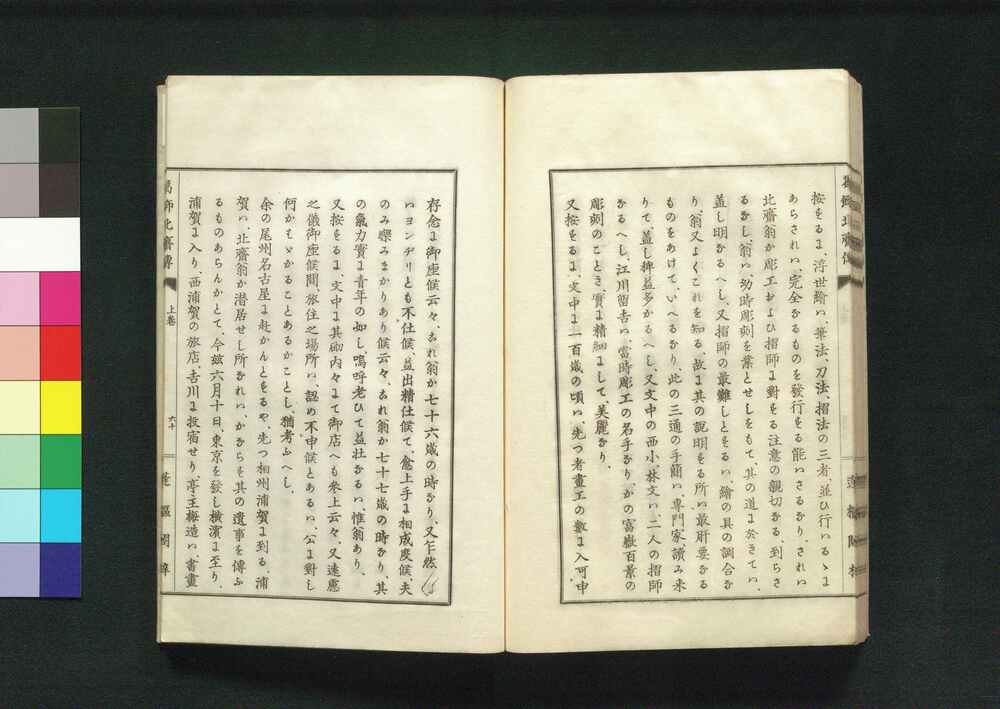 按もるよ、浮世繪ハ、筆法、刀法、摺法の三者、並ひ行ハるゝよ
あらされハ、完全なるものを發行もる能ハさるなり、されハ
北齋翁か彫工および摺師よ對もる注意の親切なる、到らさ
るなし、翁ハ、幼時彫刻を業とせしをもて、其の道よ於きてハ、
蓋し明なるへし、又摺師の最難しともるハ、繪の具の調合な
り、翁又よくこれを知る、故よ其の説明もる所ハ最肝要なる
ものをあけて、いへるなり、此の三通の手簡ハ、專門家讀み来
りて、蓋し裨益多かるへし、又文中の西小林文ハ、二人の摺師
なるへし、江川留吉ハ、當時彫工の名手なり、かの富嶽百景の
彫刻のことき、實よ精細よして、美麗なり、
又按もるよ、文中よ一百歳の頃ハ、先つ者畫工の數よ入可申
存念よ御座候云々、これ翁か七十六歳の時なり、又乍然
ハヨンヂリとも不仕候、益出精仕候て、愈上手よ相成度候、夫
のみ樂みまかりあり候云々、これ翁か七十七歳の時なり、其
の氣力實よ青年の如し、嗚呼老ひて益壮なるハ、惟翁あり、
又按もるよ、文中よ其砌内々よて御店へも参上云々、又遠慮
之儀御座候間、旅住之場所ハ、認め不申候とあるハ、公よ對し
何かはゝかることあるかことし、猶考ふへし、
余の尾州名古屋よ赴かんともるや、先つ相州浦賀よ到る、浦
賀ハ、北齋翁か潜居せし所なれハ、かならも其の遺事を傳ふ
るものあらんかとて、今玆六月十日、東京を發し横濱よ至り、
浦賀よ入り、西浦賀の旅店、吉川よ投宿せり、亭主梅造ハ、書畫
葛飾北齋傳
上卷
六十